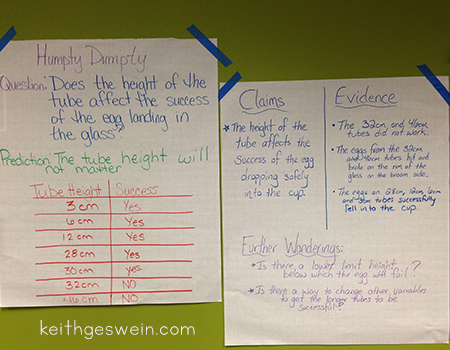 Humpty Dumpty
Question: Does the height of the
tube affect the success
of the egg landing in
the glass?
Prediction: The tube height will
not matter
Tube Height Success
3 cm Yes
6 cm Yes
12 cm Yes
28 cm Yes
30 cm Yes
32 cm NO
46 cm NO
Claims
* The height of the
tube affects the
success of the egg
dropping safely
into the cup.
Evidence
• The 32cm and 46cm
tubes did not work.
• The eggs from the 32cm
and 46cm tubes hit and
broke on the rim of the
glass on the broom side.
• The eggs on 28cm, 12cm, 6cm
and 3cm tubes successfully
fell into the cup.
Further Wonderings:
* Is there a lower limit height
below which the egg will fail?
* Is there a way to change other variables
to get the longer tubes to be
successful?
keithgeswein.com